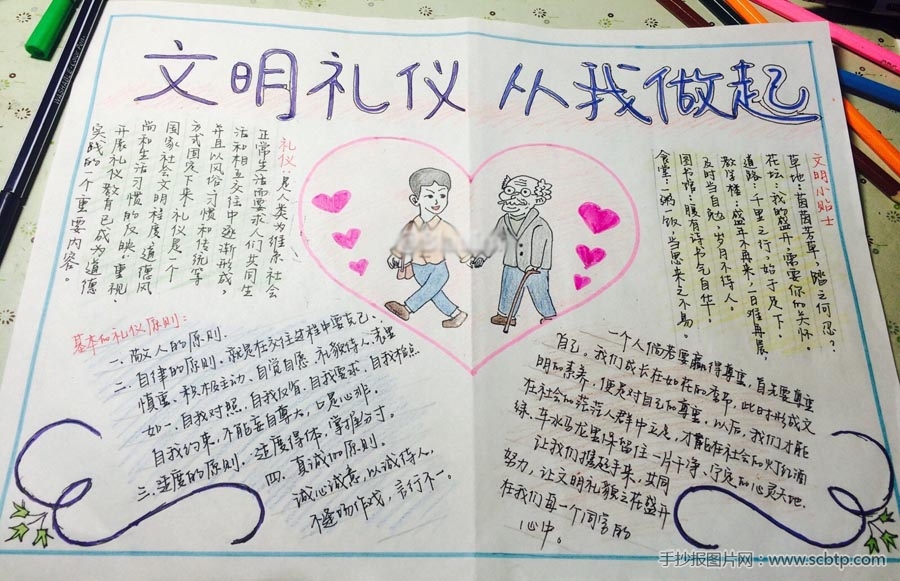 文明礼仪 从我做起
礼仪:是人类为维系社会
正常生活而要求人们共同生
活和相互交往中逐渐形成,
并且以风俗、习惯和传统等
方式固定下来,礼仪是一个
国家社会文明程度、道德风
尚和生活习惯的反映。重视、
开展礼仪教育已成为道德
实战的一个重要内容。
文明小贴士
草地:茵茵芳草,踏之何忍?
花坛:我的盛开,需要你的关怀。
道路:千里之行,始于足下。
教学楼:盛年不再来,一日难再晨,
及时当自勉,岁月不待人。
图书馆:腹有诗书气自华。
食堂:一粥一饭,当思来之不易。
基本的礼仪原则:
一、敬人的原则.
二、自律的原则.就是在交往过程中要克己、
慎重、积极主动、自觉自愿、礼貌待人、表里
如一.自我对照.自我反省.自我要求.自我检点
自我约束,不能妄自尊大,口是心非.
三、适度的原则.适度得体,掌握分寸。
四、真诚的原则.
诚心诚意,以诚待人,
不逢场作戏,言行不一。
一个人倘若要赢得尊重,首先要尊重
自己。我们成长在如花的季节,此时形成文
明的素养,便是对自己的尊重,以后,我们才能
在社会的茫茫人群中立足,才能在社会的灯红酒
绿、车水马龙里保留住一片干净、宁定的心灵天地.
让我们携起手来,共同
努力,让文明礼貌之花盛开
在我们每一个同学的
心中。
手抄报图片网:www.scbtp.com